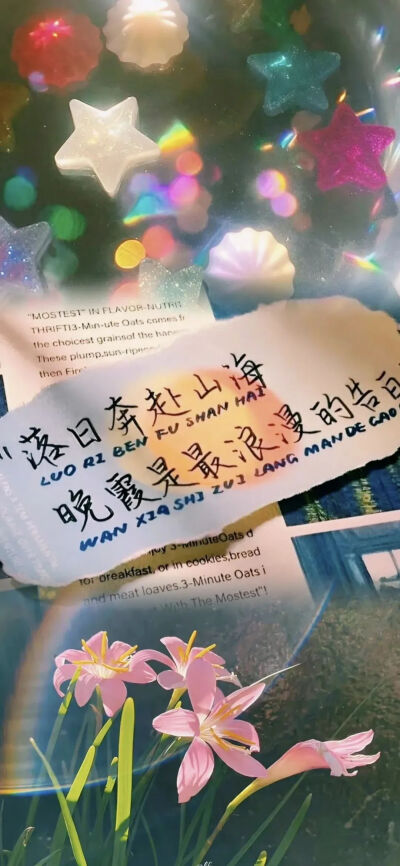 "MOSTEST" IN FLAVOR-NUTRI
THRIFT!3-Minute Oats comes f
the choicest grains of the
These plump, sun-ripe
then Fire
"落日奔赴山海
LUO RI BEN FU SHAN HAI
晚霞是最浪漫的告白
WAN XIA SHI ZUI LANG MAN DE GAO
njoy 3-Minute Oats d
for breakfast, or in cookies, bread
and meat loaves. 3-Minute Oats i
With The Mostest"!